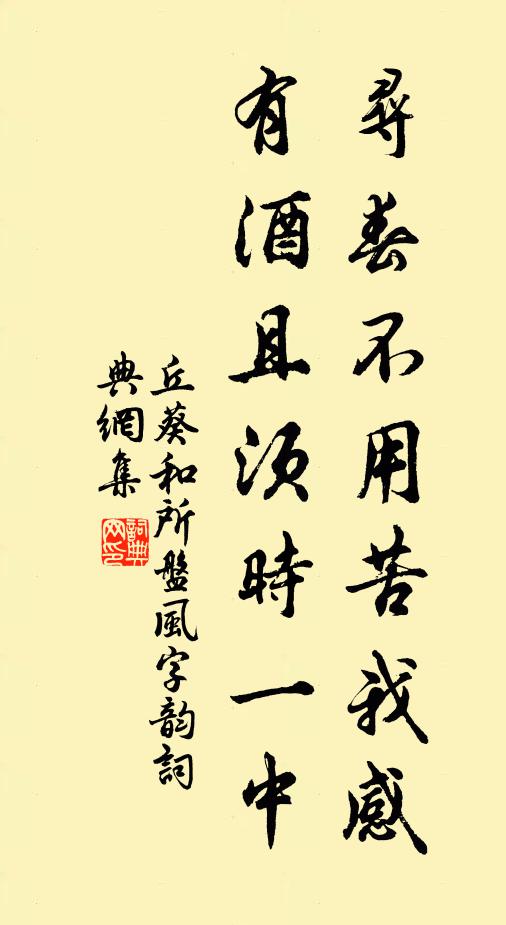 尋春不用苦我感
有酒且須時一中
丘葵和所盤風字韵詞
典網集
詞典
网印